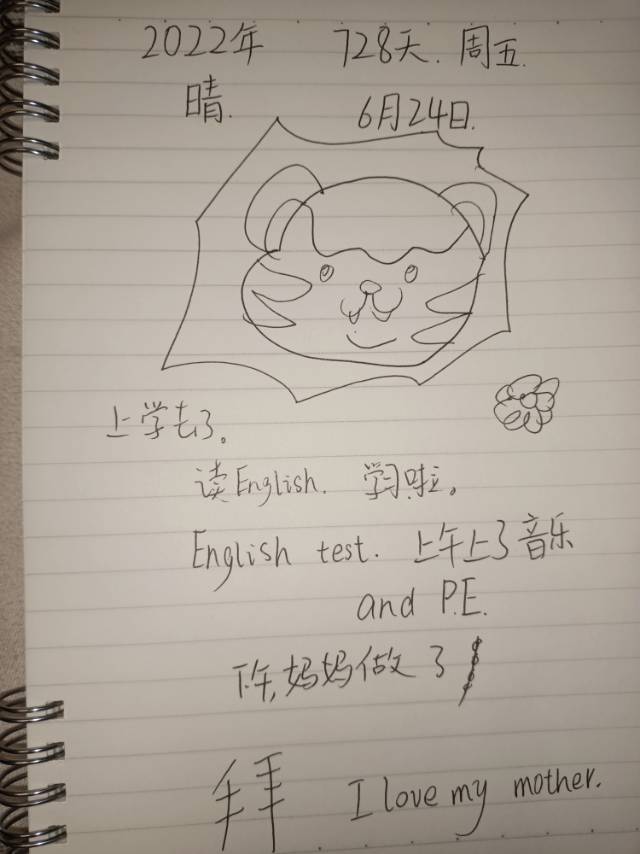 2022年 728天. 周五.
晴. 6月24日.
上学去了。
读English. 学习啦。
English test. 上午上了音乐
and P.E.
下午,妈妈做了
拜 I love my mother.